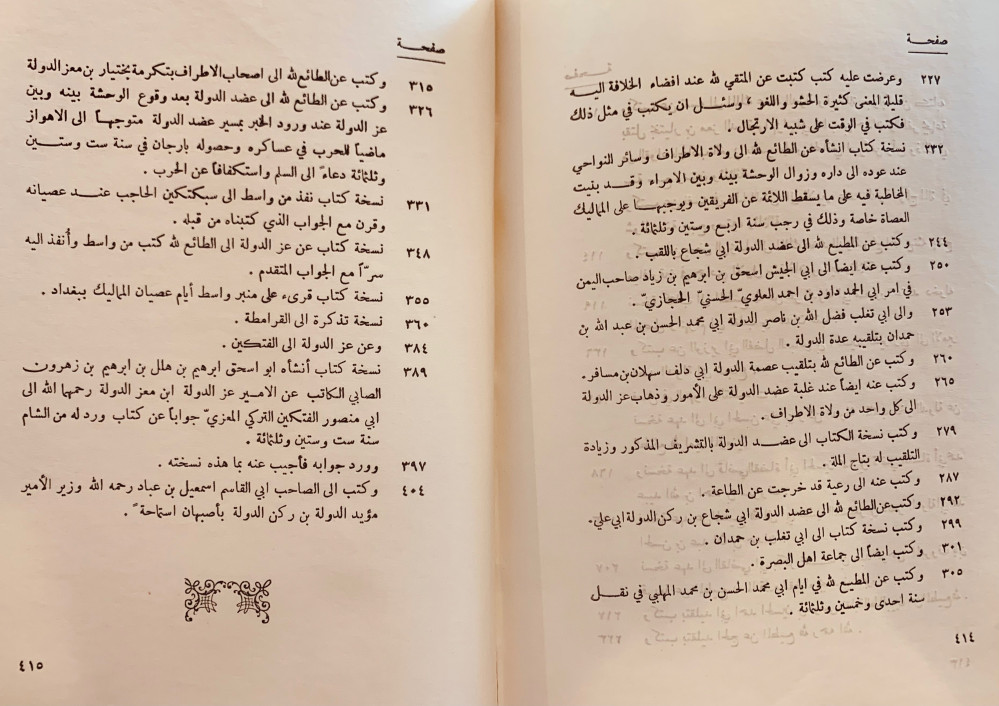 صفحـــة
٢٢٧ وعرضت عليه كتب كتبت عن المتقي لله عند افضاء الخلافة اليـــه
قليلة المعنى كثيرة الحشو واللغو ، وسئــل ان يكتب في مثل ذلك
فكتب في الوقت على شبيه الارتجال .
٢٣٢ نسخة كتاب انشأه عن الطائع لله الى ولاة الاطراف وسائر النواحي
عند عوده الى داره وزوال الوحشة بينه وبين الامراء وقــد بنيت
المخاطبة فيه على ما يسقط اللائمة عن الفريقين ويوجبهــا على المماليك
العصاة خاصة وذلك في رجب سنة اربع وستين وثلثمائة .
٢٤٤ وكتب عن المطيع لله الى عضد الدولة ابي شجاع باللقب .
٢٥٠ وكتب عنه ايضاً الى ابي الجيش اسحق بن ابرهيم بن زياد صاحب اليمن
في امر ابي الحمد داود بن احمد العلويّ الحسنيّ الحجازيّ .
٢٥٣ والى ابي تغلب فضل الله بن ناصر الدولة ابي محمد الحسن بن عبد الله بن
حمدان بتلقيبه عدة الدولة .
٢٦٠ وكتب عن الطائع لله بتلقيب عصمة الدولة ابي دلف سهلان بن مسافر.
٢٦٥ وكتب عنه ايضاً عند غلبة عضد الدولة على الأمور وذهاب عز الدولة
الى كل واحد من ولاة الاطراف .
٢٧٩ وكتب نسخة الكتاب الى عضــد الدولة بالتشريف المذكور وزيادة
التلقيب له بتاج الملة .
٢٨٧ وكتب عنه الى رعية قد خرجت عن الطاعة .
٢٩٢ وكتب عن الطائع لله الى عضد الدولة ابي شجاع بن ركن الدولة ابي علي.
٢٩٩ وكتب نسخة كتاب الى ابي تغلب بن حمدان .
٣٠١ وكتب ايضاً الى جماعة اهل البصرة .
٣٠٥ وكتب عن المطيع لله في ايام ابي محمد الحسن بن محمد المهلبي في نقــل
سنة احدى وخمسين وثلثمائة .
٤١٤
صفحـــة
٣١٥ وكتب عن الطائع لله الى اصحاب الاطراف بتكرمة بختيار بن معز الدولة
٣٢٦ وكتب عن الطائع لله الى عضد الدولة بعد وقوع الوحشة بينه وبين
عز الدولة عند ورود الخبر بمسير عضد الدولة متوجهــاً الى الاهواز
ماضياً للحرب في عساكره وحصوله بارجان في سنة ست وستــين
وثلثمائة دعاءً الى السلم واستكفافاً عن الحرب .
٣٣١ نسخة كتاب نفذ من واسط الى سبكتكين الحاجب عنــد عصيانه
وقرن مع الجواب الذي كتبناه من قبله .
٣٤٨ نسخة كتاب عن عز الدولة الى الطائع لله كتب من واسط وأنفذ اليه
سرّاً مع الجواب المتقدم .
٣٥٥ نسخة كتاب قرىء على منبر واسط أيام عصيان المماليك ببغداد .
٣٦٠ نسخة تذكرة الى القرامطة .
٣٨٤ وعن عز الدولة الى الفتكين .
٣٨٩ نسخة كتاب أنشأه ابو اسحق ابرهيم بن هلل بن ابرهيم بن زهرون
الصابي الكاتب عن الامير عز الدولة ابن معز الدولة رحمهما الله الى
ابي منصور الفتكين التركي المعزيّ جواباً عن كتاب ورد له من الشام
سنة ست وستين وثلثمائة .
٣٩٧ وورد جوابه فأجيب عنه بما هذه نسخته .
٤٠٤ وكتب الى الصاحب ابي القاسم اسمعيل بن عباد رحمه الله وزير الأمير
مؤيد الدولة بن ركن الدولة بأصبهان استماحةً .
٤١٥